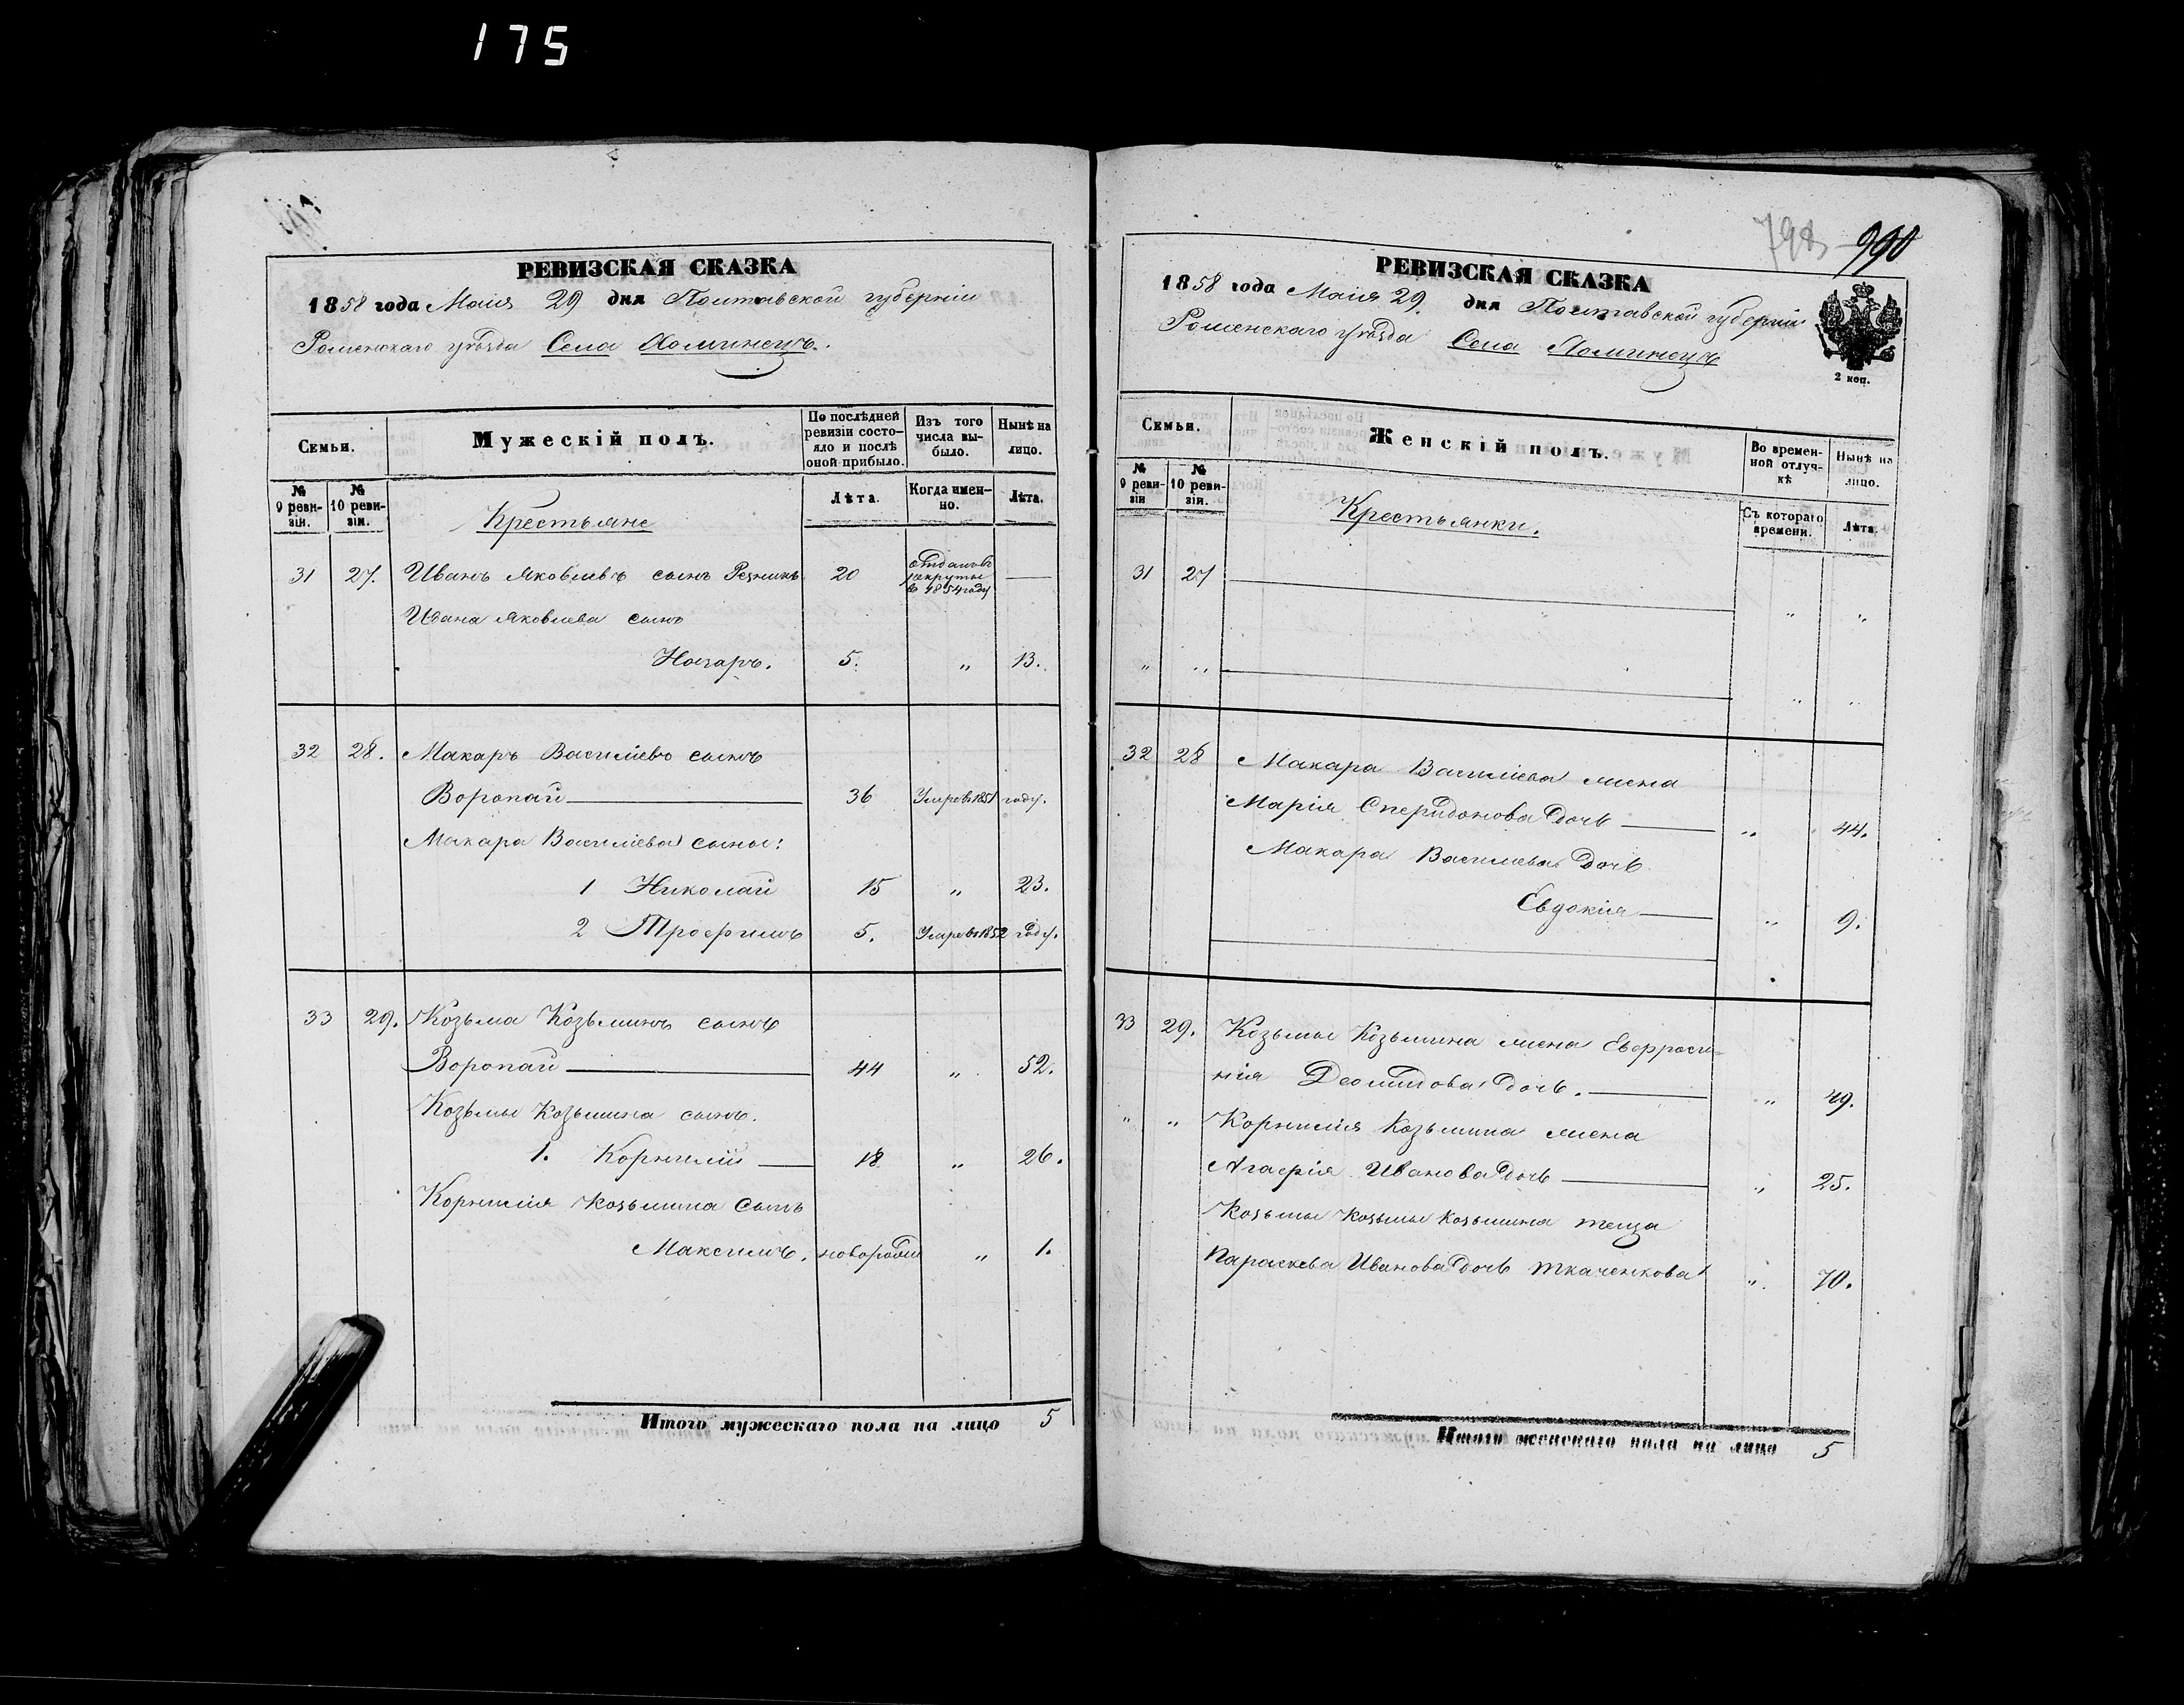 175
РЕВИЗСКАЯ СКАЗКА
1858 года Маія 29 дня Полтавской губерніи
Роменскаго уѣзда Села Хоминецъ.
Семьи.
Мужескій полъ.
По послѣдней ревизіи состояло и послѣ оной прибыло.
Изъ того числа выбыло.
Нынѣ на лицо.
№ 9 ревизіи.
№ 10 ревизіи.
Крестьяне
Лѣта.
Когда именно.
Лѣта.
31 27. Иванъ Яковлевъ сынъ Резникъ 20 отданъ въ рекруты в 1854 году —
Ивана Яковлева сынъ
Назаръ. 5. „ 13.
32 28. Макаръ Василіевъ сынъ
Воропай 36 Умре въ 1851 году.
Макара Василіева сыны:
1 Николай 15 „ 23.
2 Трофимъ 5. Умре въ 1852 году.
33 29. Козьма Козьминъ сынъ
Воропай 44 „ 52.
Козьмы Козьмина сынъ.
1. Корнилій 18 „ 26.
Корнилія Козьмина сынъ
Максимъ. новорожд „ 1.
Итого мужескаго пола на лицо 5
798 990
РЕВИЗСКАЯ СКАЗКА
1858 года Маія 29. дня Полтавской губерніи
Роменскаго уѣзда Села Хоминецъ
2 коп.
Семьи.
Женскій полъ.
Во временной отлучкѣ
Нынѣ на лицо.
№ 9 ревизіи
№ 10 ревизіи.
Крестьянки.
Съ котораго времени.
Лѣта.
31 27 „ „
„ „ „ „
32 28 Макара Василіева жена
Марія Спиридонова дочь „ 44.
Макара Василіева дочь
Евдокія „ 9.
33 29. Козьмы Козьмина жена Евфроси-
нія Деомидова дочь. „ 49.
„ „ Корнилія Козьмина жена
Агафія Иванова дочь „ 25.
Козьмы Козьмы Козьмина теща
Параскева Иванова дочь Ткаченкова „ 70.
Итого женскаго пола на лицо 5